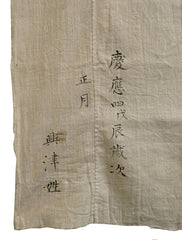 慶應四戊辰歳次
正月
興津姓